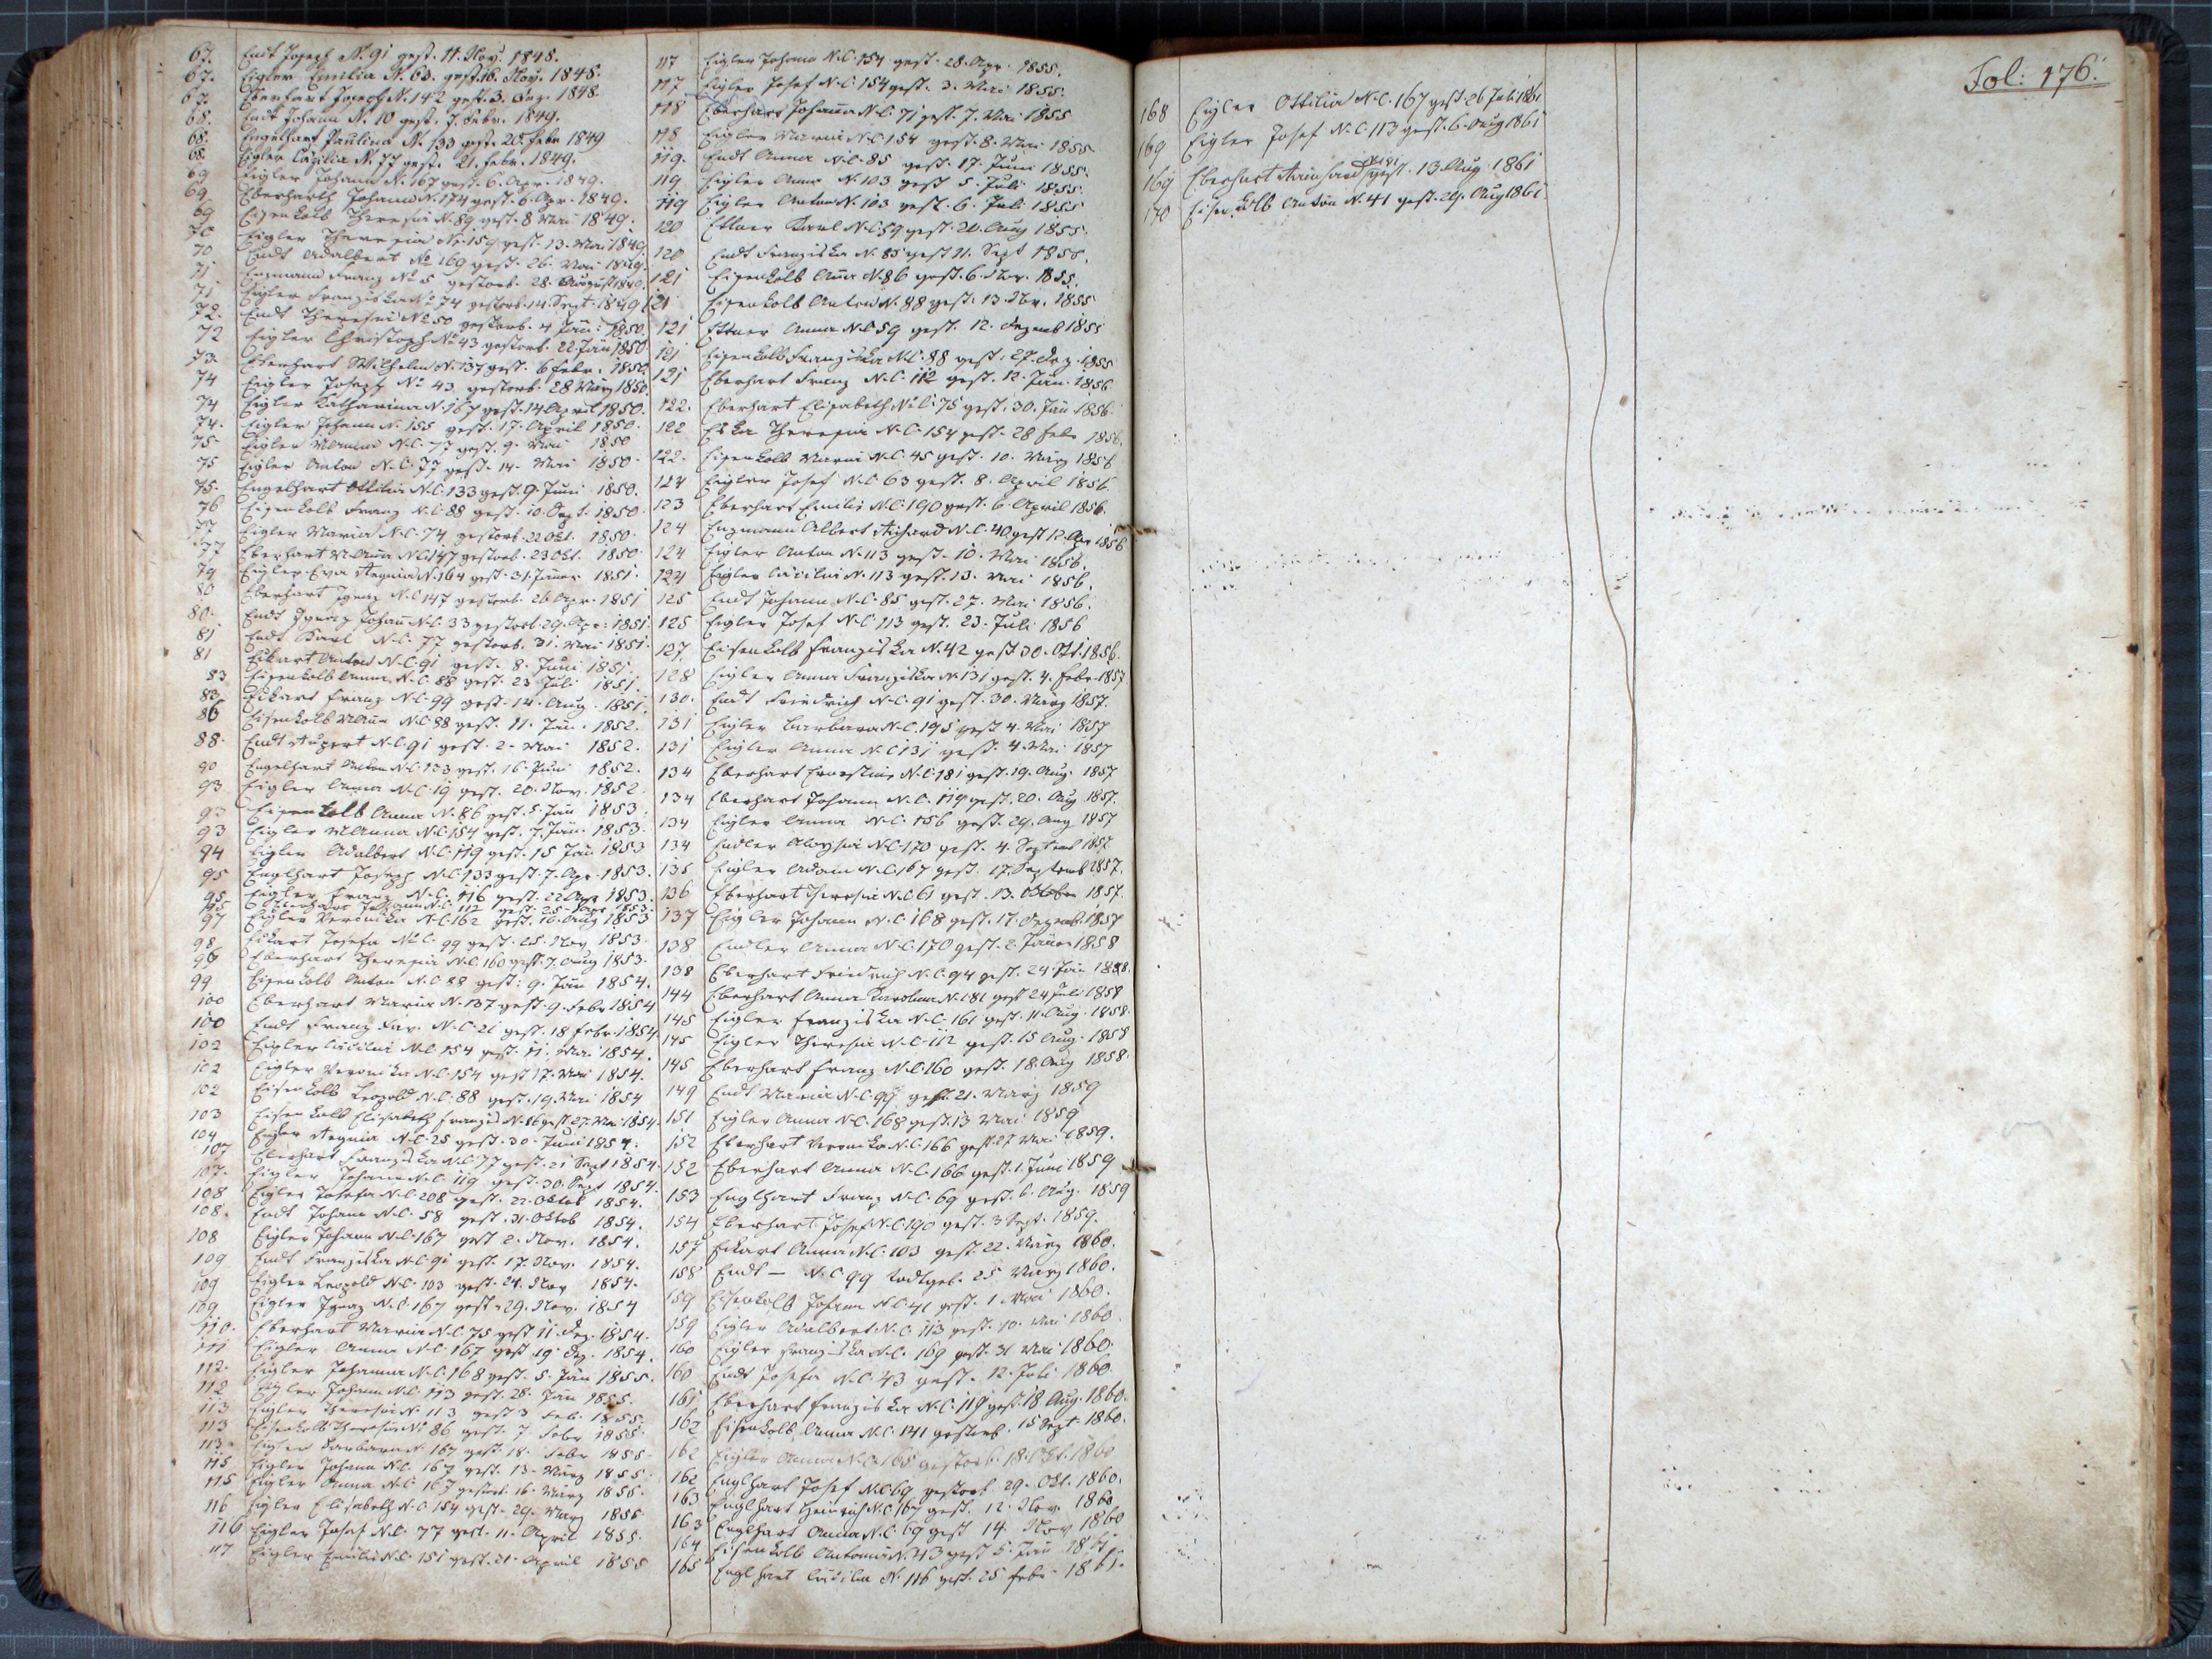 67. Endt Joseph N. 91 gest. 11. Nov. 1848.
67. Eigler Emilia N. 63. gest. 16. Nov. 1848.
67. Eberhart Joseph N. 142 gest. 3. Dez. 1848.
68. Endt Johann N. 10 gest. 7. Febr. 1849.
68. Engelhart Paulina N. 133 gest. 20. Febr 1849
68. Eigler Cäcilia N. 77 gest. 21. Febr. 1849.
69 Eigler Johann N. 167 gest. 6. Apr. 1849.
69. Eberharth Johann N. 174 gest. 6. Apr. 1849.
69 Eisenkolb Theresia N. 89 gest. 8 Mai 1849.
70 Eigler Theresia No. 159 gest. 13. Mai 1849.
70 Endt Adalbert No 169 gest. 26. Mai 1849.
71 Enzmann Franz No 5 gestorb. 28. August 1849.
71 Eigler Franziska No 74 gestorb. 14. Sept. 1849
72. Endt Theresia No 50 gestorb. 4 Jän: 1850.
72 Eigler Christoph No 43 gestorb. 22. Jän 1850.
73 Eberhart Wilhelm N. 137 gest. 6 Febr. 1850.
74 Eigler Joseph No 43 gestorb. 28 März 1850.
74 Eigler Katharina N. 167 gest. 14 April 1850.
74. Eigler Johann N. 155 gest. 17. April 1850.
75. Eigler N.C. 77 gest. 9. Mai 1850
75 Eigler Anton N.C. 77 gest. 14. Mai 1850.
75. Engelhart Ottilia N.C. 133 gest. 9. Juni 1850.
76 Eisenkolb Franz N.C. 88 gest. 10. Sept. 1850
77 Eigler Maria N.C. 74 gestorb. 22 Okt. 1850.
77 Eberhart M. Anna N.C. 147 gestorb. 23 Okt. 1850.
79 Eigler Eva Regina N. 164 gest. 31. Jänner 1851.
80 Eberhart Ignaz N.C. 147 gestorb. 26 Apr. 1851
80. Endt Ignaz Johann N.C. 33 gestorb. 29. Apr: 1851.
81 Endt Karl N.C. 77 gestorb. 31. Mai 1851.
81 Eckart Anton N.C. 91 gest. 8. Juni 1851.
83 Eisenkolb Anna N.C. 88 gest. 23 Juli 1851.
83. Eckart Franz N.C. 99 gest. 14. Aug. 1851.
86 Eisenkolb M. Anna N.C. 88 gest. 11. Jän. 1852.
88. Endt Rupert N.C. 91 gest. 2. Mai 1852.
90 Engelhart Anton N.C. 133 gest. 16. Juni 1852.
93 Eigler Anna N.C. 19 gest. 20. Nov. 1852.
93 Eisenkolb Anna N. 86 gest. 5 Jän 1853.
93 Eigler M. Anna N.C. 154 gest. 7. Jän. 1853.
94 Eigler Adalbert N.C. 119 gest. 15 Jän 1853
95 Englhart Joseph N.C. 133 gest. 7. Apr. 1853.
95. Eigler Franz N.C. 116 gest. 22 Apr 1853.
95 Eberhart Johann N.C. 112 gest. 25. 1853.
97 Eigler Veronika N.C. 162 gest. 10. Aug 1853
98 Eckart Josefa No C. 99 gest. 25. Nov 1853.
96 Eberhart Theresia N.C. 160 gest. 7. Aug 1853.
99 Eisenkolb Anton N.C. 88 gest: 9. Jän 1854.
100 Eberhart Maria N. 137 gest. 9. Febr 1854
100 Endt Franz Xav. N.C. 21 gest. 18 Febr. 1854
102 Eigler Cäcilia N.C. 154 gest. 11. Mai 1854.
102 Eigler Veronika N.C. 154 gest 17. Mai 1854.
102 Eisenkolb Leopold N.C. 88 gest. 19. Mai 1854
103 Eisenkolb Elisabeth N. 86 gest 27. Mai 1854.
104 Eigler Regina N.C. 25 gest. 30. Juni 1854.
107 Eberhart Franziska N.C. 77 gest. 21 Sept 1854.
107. Eigler Johann N.C. 119 gest. 30. Sept 1854.
108 Eigler Josefa N.C. 208 gest. 22. Oktob 1854.
108. Endt Johann N.C. 58 gest. 31. Oktob 1854.
108 Eigler Johann N.C. 167 gest 2. Nov. 1854.
109 Endt Franziska N.C. 91 gest. 17. Nov. 1854.
109 Eigler Leopold N.C. 103 gest. 24. Nov 1854.
109 Eigler Ignaz N.C. 167 gest. 29. Nov. 1854
110. Eberhart Maria N.C. 75 gest 11 Dez. 1854.
111 Eigler Anna N.C. 167 gest. 19. Dez. 1854.
112. Eigler Johanna N.C. 168 gest. 5. Jän 1855.
112 Eigler Johann N.C. 113 gest. 28. Jän 1855.
113 Eigler Theresia N. 113 gest 3 Feb. 1855.
113 Eisenkolb Theresia No 86 gest. 7. Febr 1855.
113. Eigler Barbara N. 167 gest. 18. Febr 1855.
115 Eigler Johann N.C. 167 gest. 13. März 1855.
115 Eigler Anna N.C. 167 gestorb. 16. März 1855.
116 Eigler Elisabeth N.C. 154 gest. 29. März 1855
116 Eigler Josef N.C. 77 gest. 11. April 1855.
117 Eigler Emilie N.C. 151 gest. 21. April 1855
117 Eigler Johann N.C. 154 gest. 28. Apr. 1855.
117 Eigler Josef N.C. 154 gest. 3. Mai 1855.
118 Eberhart Johanna N.C. 71 gest. 7. Mai 1855
118 Eigler Maria N.C. 154 gest. 8. Mai 1855
119. Endt Anna N.C. 85 gest. 17. Juni 1855.
119 Eigler Anna N. 103 gest 5. Juli 1855.
119 Eigler Anton N. 103 gest. 6. Juli 1855
120 Ettner Karl N.C. 59 gest. 20. Aug 1855.
120 Endt Franziska N. 85 gest 11. Sept 1855.
121 Eisenkolb Anna N. 86 gest. 6. Nov. 1855.
121 Eisenkolb Anton N. 88 gest. 13. Nov. 1855
121 Ettner Anna N.C. 59 gest. 12. Dezemb 1855
121 Eisenkolb Franziska N.C. 88 gest. 27. Dez. 1855
121 Eberhart Franz N.C. 112 gest. 12. Jän. 1856
122. Eberhart Elisabeth No C. 75 gest. 30. Jän 1856.
122 Theresia N.C. 154 gest. 28 Feb. 1856.
122. Eisenkolb Maria N.C. 45 gest. 10. März 1856
124 Eigler Josef N.C. 63 gest. 8. April 1856.
123 Eberhart Emilie N.C. 190 gest. 6 April 1856.
124 Enzmann Albert Richard N.C. 40 gest 12. Apr 1856
124 Eigler Anton N. 113 gest. 10. Mai 1856.
124 Eigler Cäcilia N. 113 gest. 13. Mai 1856.
125 Endt Johann N.C. 85 gest. 27. Mai 1856.
125 Eigler Josef N.C. 113 gest. 23. Juli 1856
127. Eisenkolb Franziska N. 42 gest 30. Okt. 1856.
128 Eigler Anna Franziska N. 131 gest. 4. Febr. 1857
130. Endt Friedrich N.C. 91 gest. 30. März 1857.
131 Eigler Barbara N.C. 195 gest 4. Mai 1857
131 Eigler Anna N.C. 131 gest. 4. Mai 1857
134 Eberhart Ernestine N.C. 181 gest. 19. Aug. 1857
134 Eberhart Johann N.C. 119 gest. 20. Aug 1857.
134 Eigler Anna N.C. 156 gest. 29. Aug 1857
134 Endler Aloysia N.C. 170 gest. 4. Septemb 1857
135 Eigler Adam N.C. 167 gest. 17. Septemb 1857.
136 Eberhart Theresia N.C. 61 gest. 13. Oktober 1857.
137 Eigler Johann N.C. 168 gest. 17. Dezemb. 1857
138 Endler Anna N.C. 170 gest. 2. Jänner 1858
138 Eberhart Friedrich N.C. 94 gest. 24. Jän 1858.
144 Eberhart Anna Karolina N.C. 81 gest 24 Juli 1858
145 Eigler Franziska N.C. 161 gest. 11. Aug. 1858.
145 Eigler Theresia N.C. 112 gest. 15 Aug. 1858
145 Eberhart Franz N.C. 160 gest. 18. Aug 1858.
149 Endt Maria N.C. 99 gest. 21. März 1859
151 Eigler Anna N.C. 168 gest. 13 Mai 1859
152 Eberhart Veronika N.C. 166 gest 27 Mai 1859.
152 Eberhart Anna N.C. 166 gest. 1. Juni 1859
153 Englhart Franz N.C. 69 gest. 6. Aug. 1859
154 Eberhart Josef N.C. 190 gest. 3 Sept. 1859.
157 Eckart Anna N.C. 103 gest. 22. März 1860.
158 Endt — N.C. 99 todtgeb. 25 März 1860.
159 Eisenkolb Johann N.C. 41 gest. 1 Mai 1860.
159 Eigler Adalbert N.C. 113 gest. 10. Mai 1860.
160 Eigler Franziska N.C. 169 gest. 31 Mai 1860.
160 Endt Josefa N.C. 43 gest. 12. Juli 1860.
161 Eberhart Franziska N.C. 119 gest. 18 Aug. 1860.
162 Eisenkolb Anna N.C. 141 gestorb. 15 Sept. 1860.
162 Eigler Anna N.C. 165 gestorb. 18. Okt. 1860
162 Englhart Josef N.C. 69 gestorb. 29. Okt. 1860.
163 Englhart Heinrich N.C. 167 gest. 12. Nov. 1860
163 Englhart Anna N.C. 69 gest 14. Nov 1860
164 Eisenkolb Antonia N. 43 gest 5. Jän 1861
165 Englhart Cäcilia N. 116 gest. 25 Febr. 1861.
Fol: 176.
168 Eigler Ottilia N.C. 167 gest. 26 Juli 1861
169 Eigler Josef N.C. 113 gest. 6. Aug 1861
169 Eberhart gest. 13. Aug 1861
170 Eisenkolb Anton N. 41 gest. 29. Aug 1861.